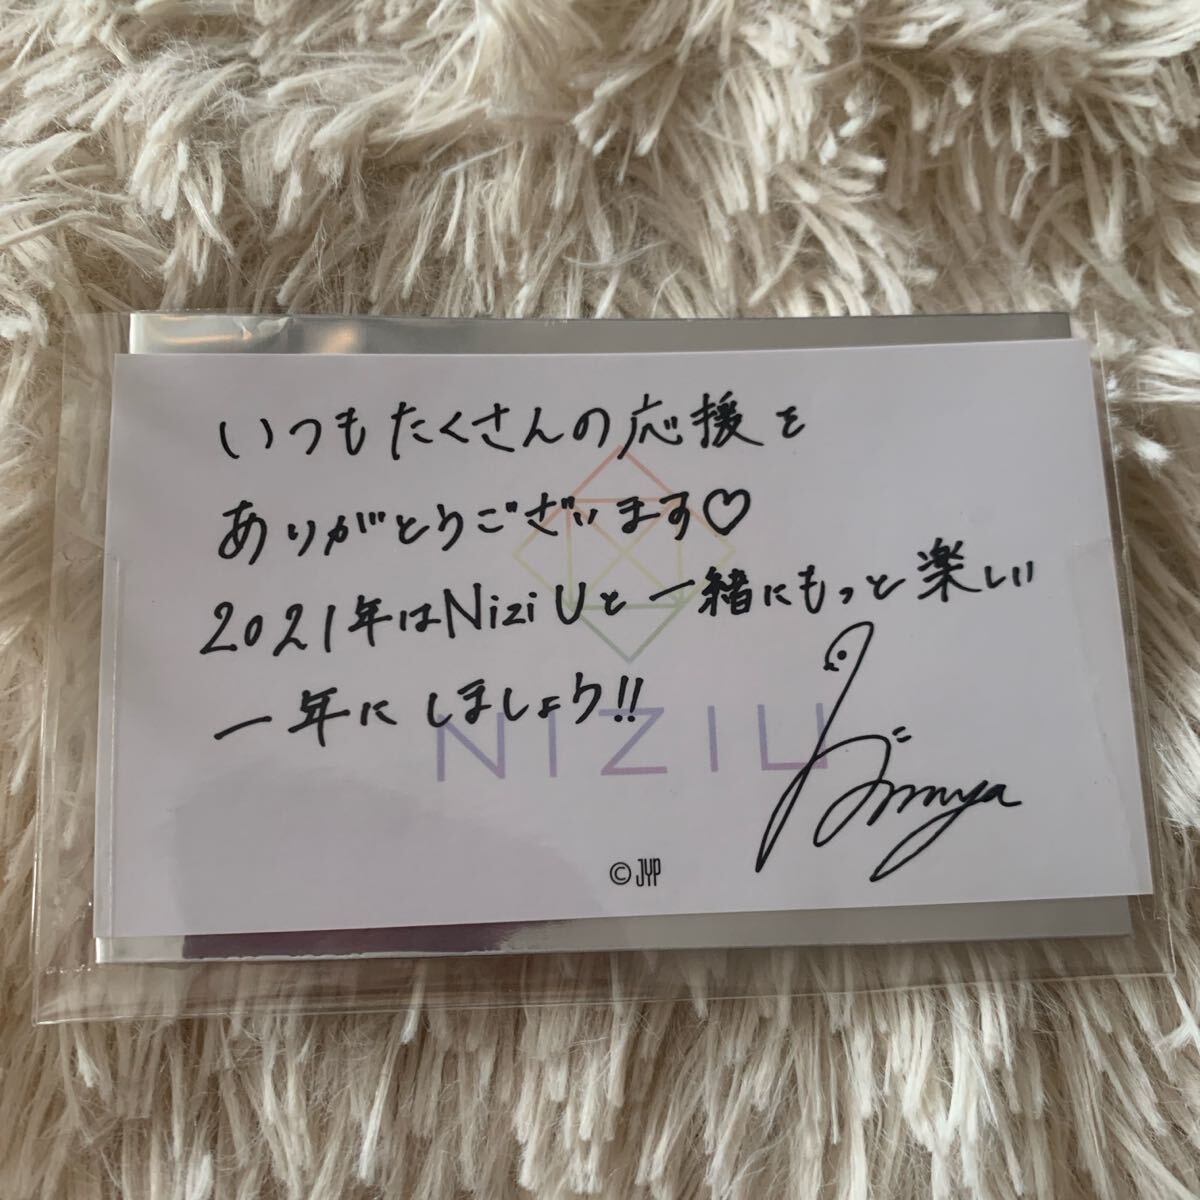 いつもたくさんの応援を
ありがとうございます♡
2021年はNiziUと一緒にもっと楽しい
一年にしましょう!!
NIZIU
©JYP